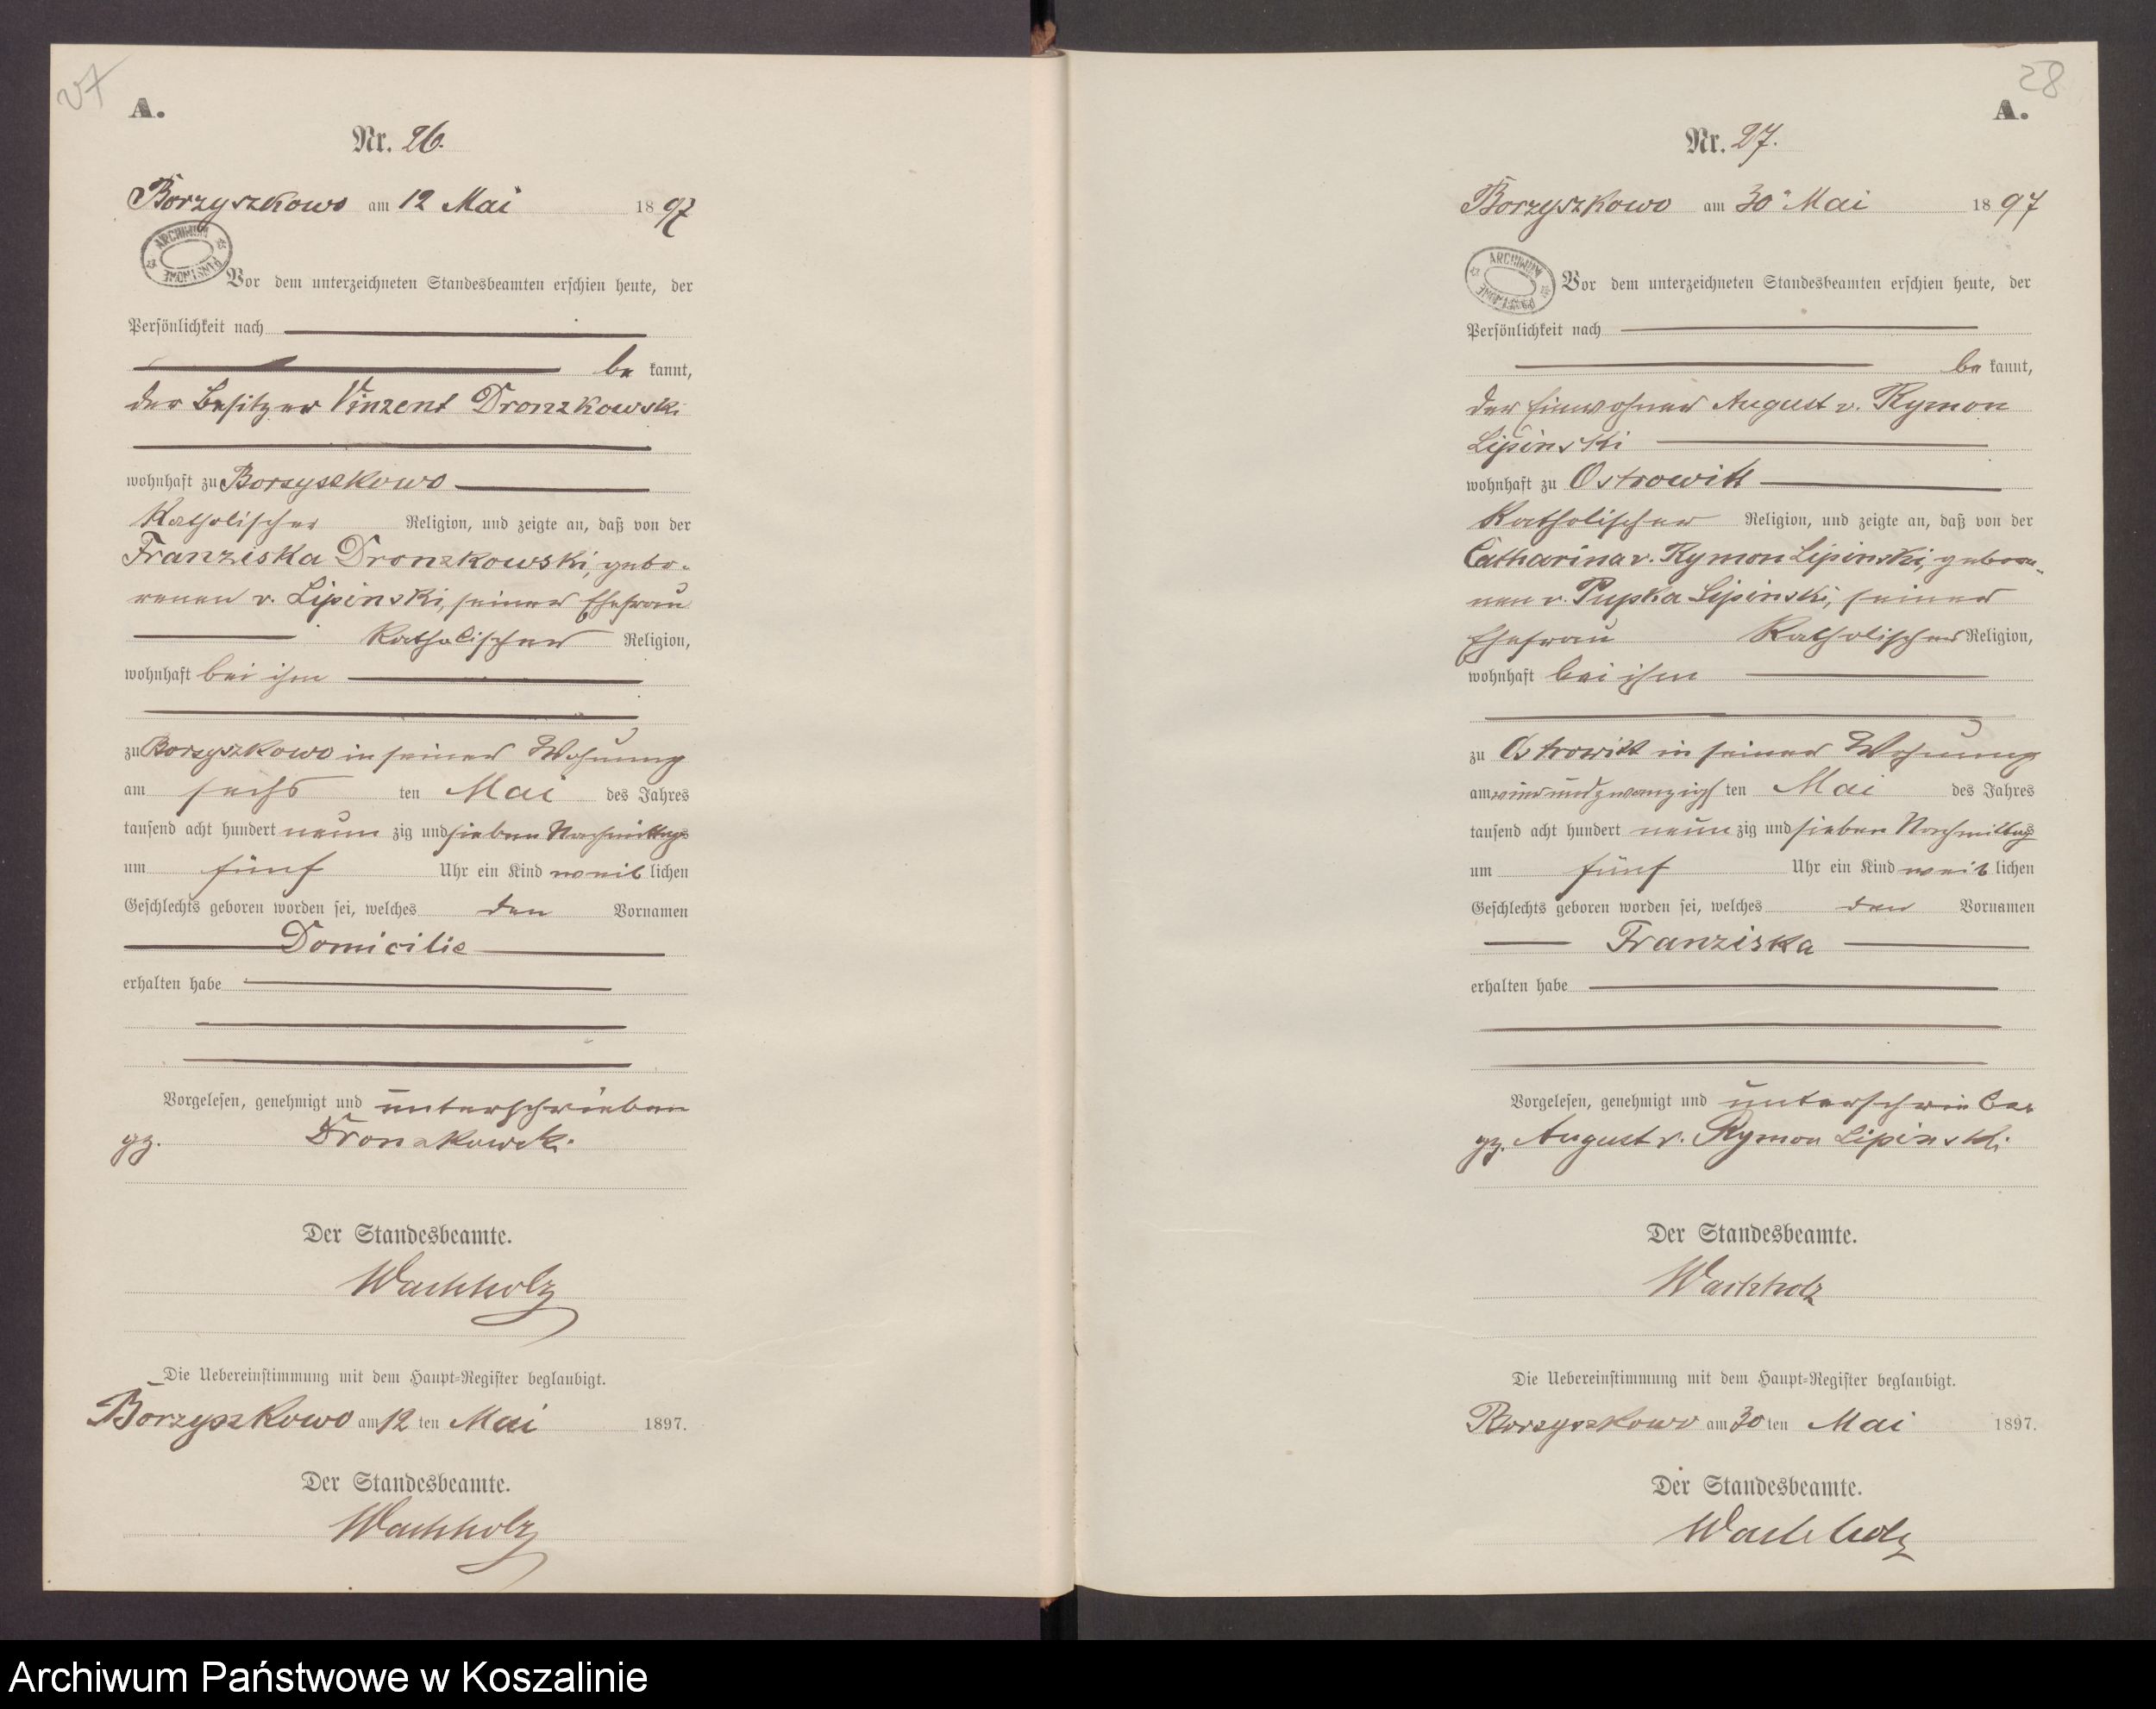 27
A.
Nr. 26.
Borzyszkowo am 12 Mai 1897
ARCHIWUM PAŃSTWOWE
Vor dem unterzeichneten Standesbeamten erschien heute, der
Persönlichkeit nach
be kannt,
der Besitzer Vinzent Dronzkowski
wohnhaft zu Borzyszkowo
Katholischer Religion, und zeigte an, daß von der
Franziska Dronzkowski, gebo-
renen v. Lipinski, seiner Ehefrau
Katholischer Religion,
wohnhaft bei ihm
zu Borzyszkowo in seiner Wohnung
am sechs ten Mai des Jahres
tausend acht hundert neun zig und sieben Nachmittags
um fünf Uhr ein Kind weib lichen
Geschlechts geboren worden sei, welches den Vornamen
Domicilie
erhalten habe
Vorgelesen, genehmigt und unterschrieben
gz. Dronzkowski
Der Standesbeamte.
Wachholz
Die Uebereinstimmung mit dem Haupt-Register beglaubigt.
Borzyszkowo am 12 ten Mai 1897.
Der Standesbeamte.
Wachholz
28
A.
Nr. 27.
Borzyszkowo am 30 Mai 1897
ARCHIWUM PAŃSTWOWE
Vor dem unterzeichneten Standesbeamten erschien heute, der
Persönlichkeit nach
be kannt,
der Einwohner August v. Rymon
Lipinski
wohnhaft zu Ostrowitt
Katholischer Religion, und zeigte an, daß von der
Catharina v. Rymon Lipinski, gebore-
nen v. Pupka Lipinski, seiner
Ehefrau Katholischer Religion,
wohnhaft bei ihm
zu Ostrowitt in seiner Wohnung
am ten Mai des Jahres
tausend acht hundert neun zig und sieben Nachmittags
um fünf Uhr ein Kind weib lichen
Geschlechts geboren worden sei, welches den Vornamen
Franziska
erhalten habe
Vorgelesen, genehmigt und unterschrieben
gz. August v. Rymon Lipinski
Der Standesbeamte.
Wachholz
Die Uebereinstimmung mit dem Haupt-Register beglaubigt.
Borzyszkowo am 30 ten Mai 1897.
Der Standesbeamte.
Wachholz
Archiwum Państwowe w Koszalinie